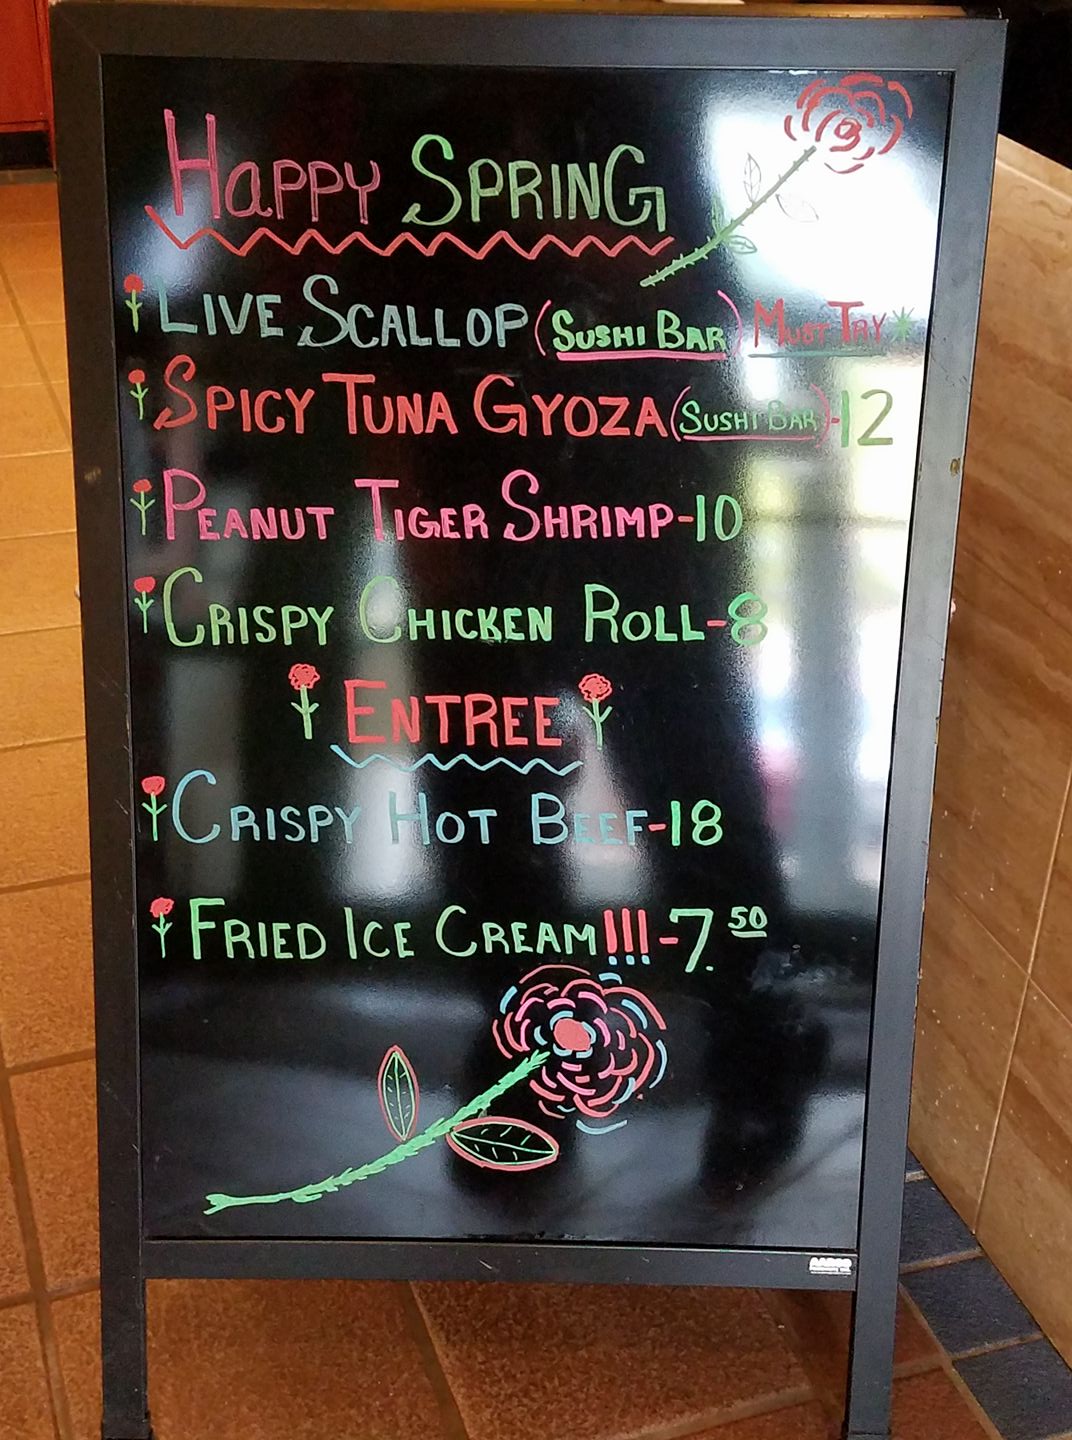 HAPPY SPRING
LIVE SCALLOP (SUSHI BAR) MUST TRY*
SPICY TUNA GYOZA (SUSHI BAR)-12
PEANUT TIGER SHRIMP-10
CRISPY CHICKEN ROLL-8
ENTREE
CRISPY HOT BEEF-18
FRIED ICE CREAM!!!-7.50